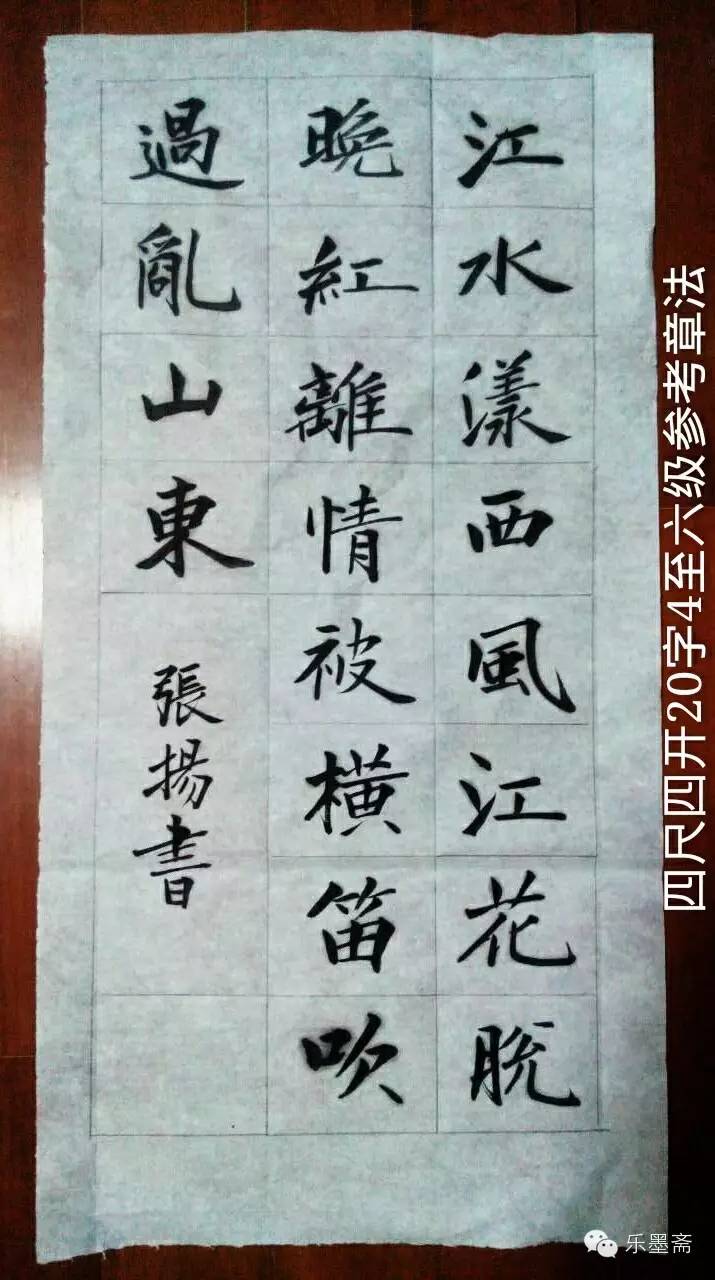 江水漾西風江花脫
晚紅離情被橫笛吹
過亂山東
張揚書
四尺四开20字4至六级参考章法
乐墨斋